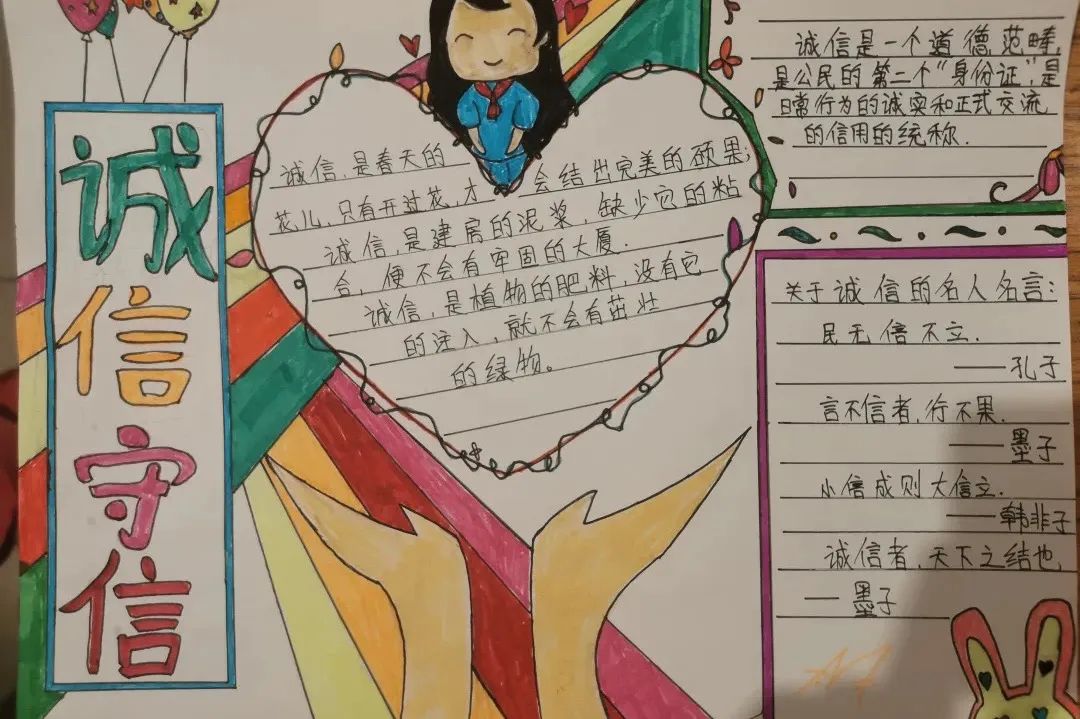 诚信守信
诚信,是春天的
花儿,只有开过花,才会结出完美的硕果;
诚信,是建房的泥浆,缺少它的粘
合,便不会有牢固的大厦.
诚信,是植物的肥料,没有它
的注入,就不会有茁壮
的绿物。
诚信是一个道德范畴,
是公民的第二个“身份证”,是
日常行为的诚实和正式交流
的信用的统称.
关于诚信的名人名言:
民无信不立.
——孔子
言不信者,行不果.
——墨子
小信成则大信立.
——韩非子
诚信者,天下之结也
—墨子